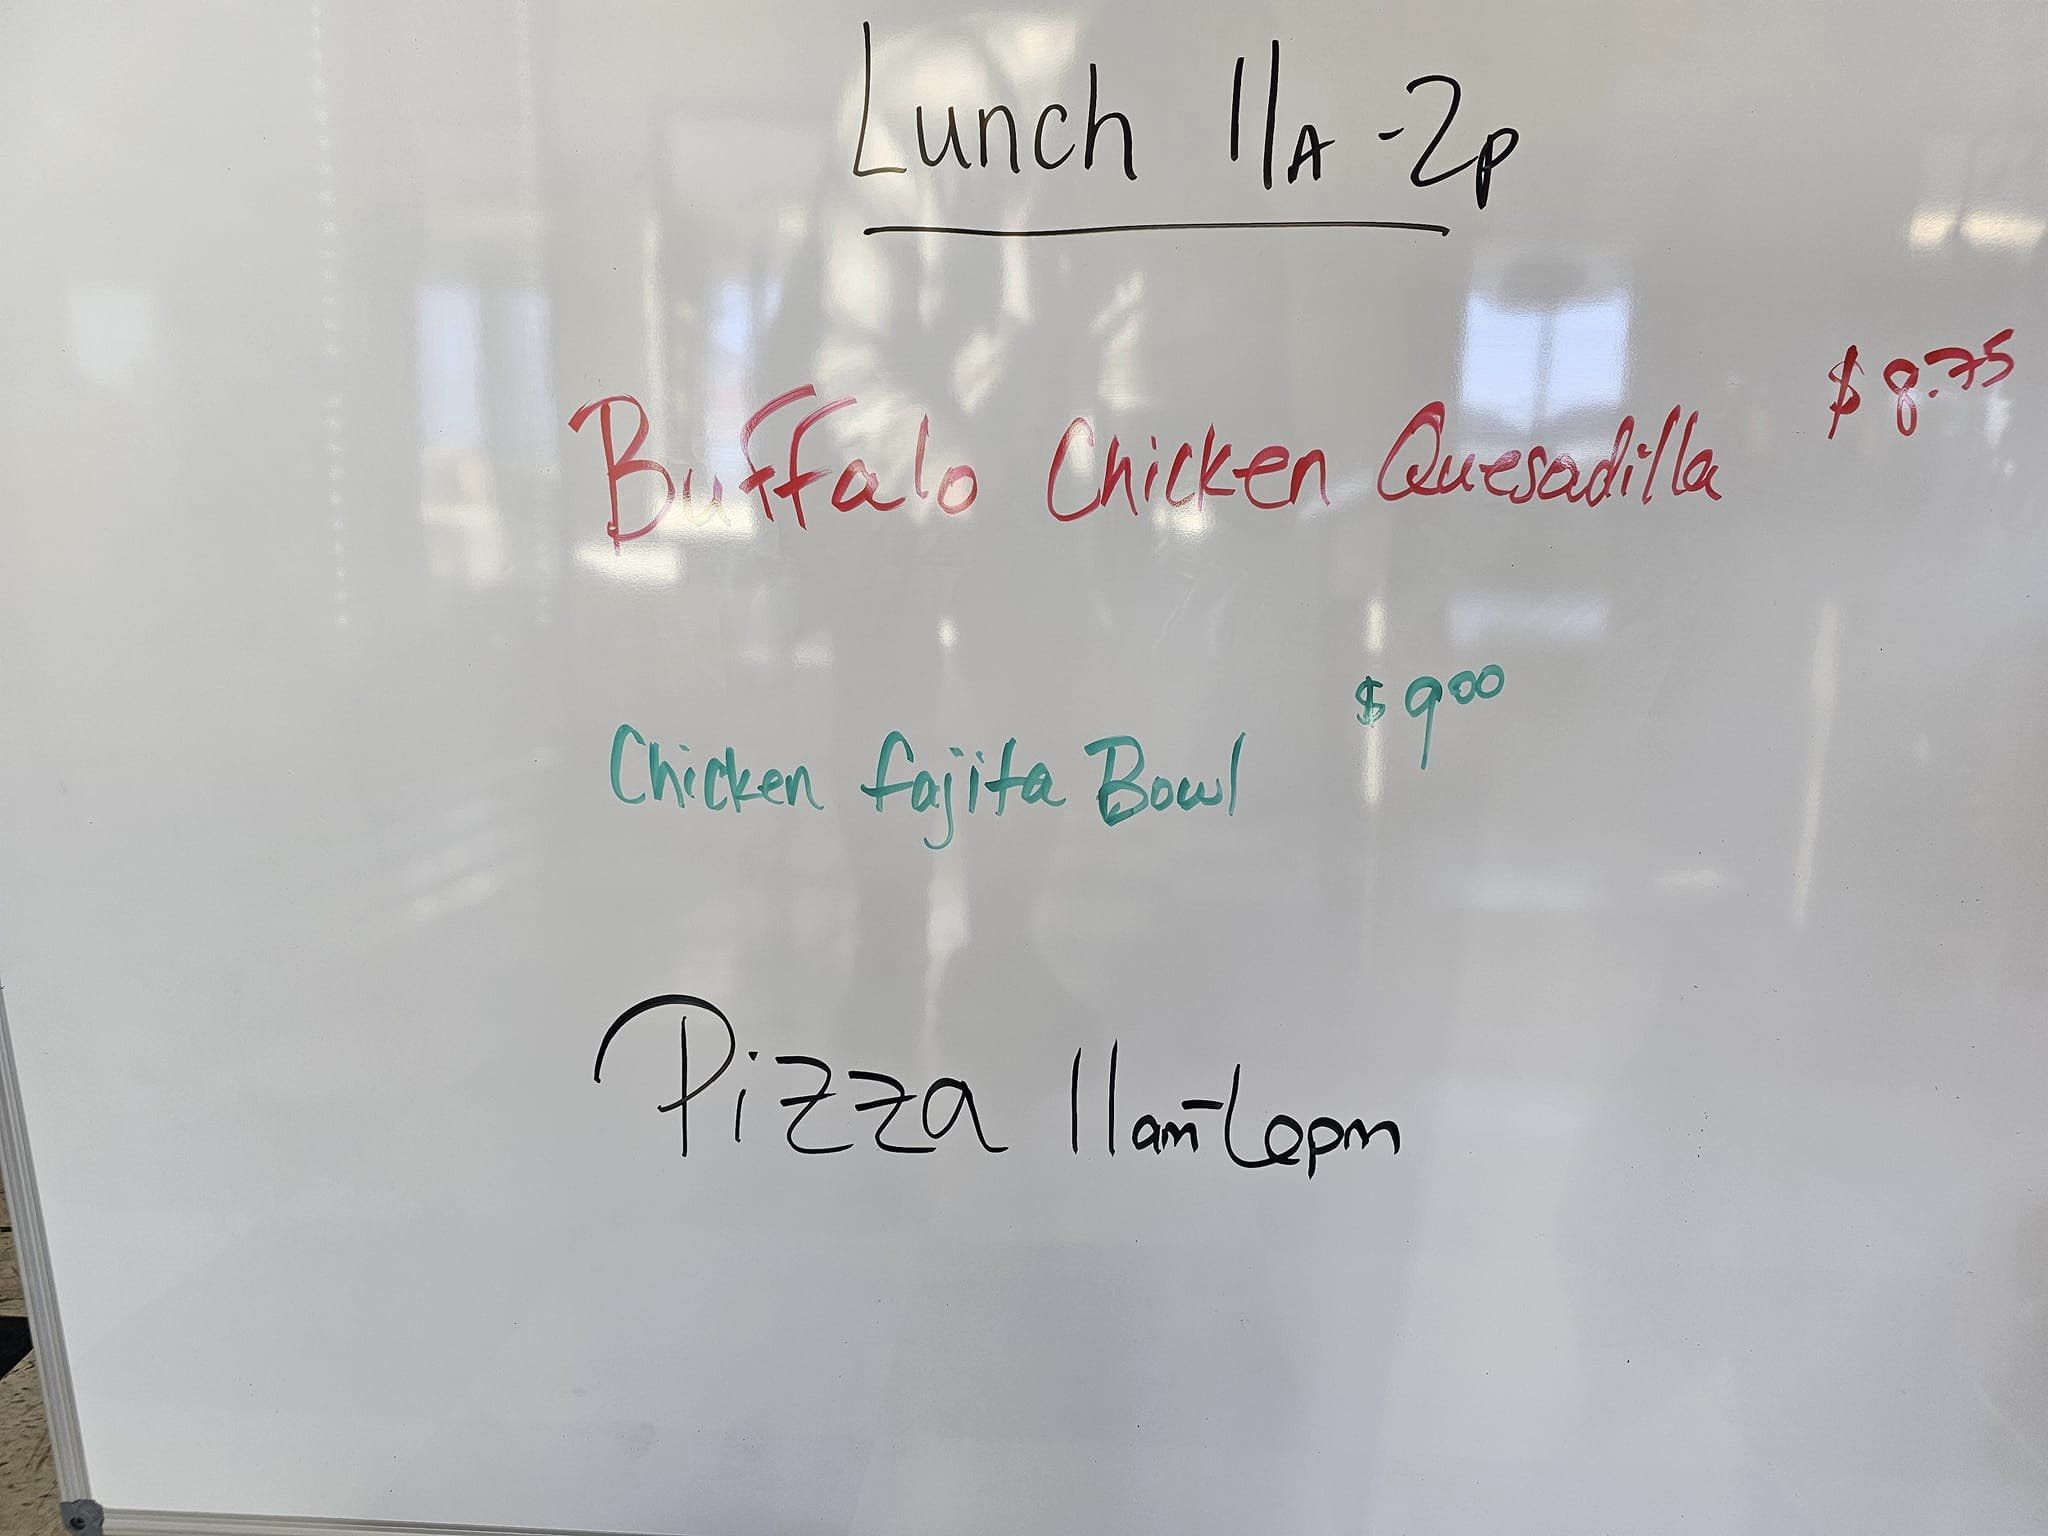 Lunch 11A-2p
Buffalo Chicken Quesadilla $8.75
Chicken fajita Bowl $9.00
Pizza 11am-6pm